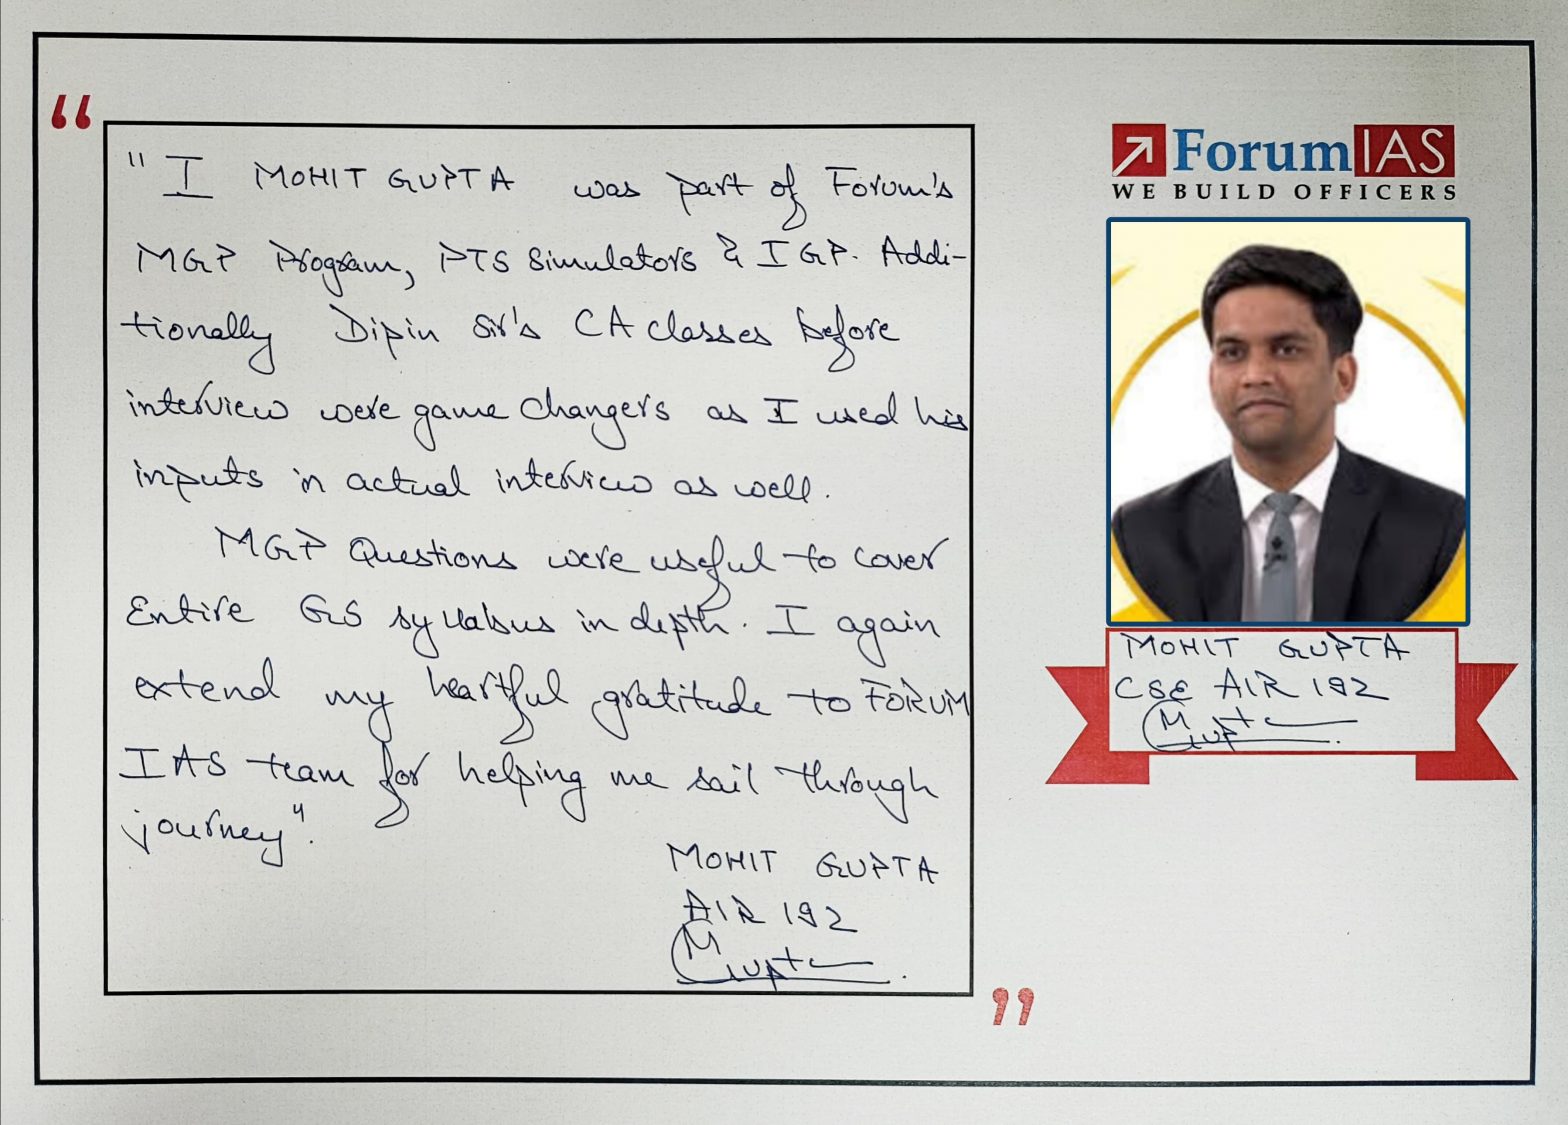 "I MOHIT GUPTA was part of Forum's
MGP Program, PTS Simulators & IGP. Addi-
tionally Dipin Sir's CA classes before
interview were game changers as I used his
inputs in actual interview as well.
MGP Questions were useful to cover
Entire GS syllabus in depth. I again
extend my heartful gratitude to FORUM
IAS team for helping me sail through
journey".
MOHIT GUPTA
AIR 192
MGupta
ForumIAS
WE BUILD OFFICERS
MOHIT GUPTA
CSE AIR 192
MGupta